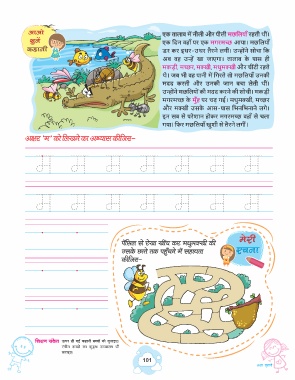 आओ
सुनें
कहानी
एक तालाब में नीली और पीली मछलियाँ रहती थीं।
एक दिन वहाँ पर एक मगरमच्छ आया। मछलियाँ
डर कर इधर-उधर तैरने लगीं। उन्होंने सोचा कि
अब वह उन्हें खा जाएगा। तालाब के पास ही
मकड़ी, मच्छर, मक्खी, मधुमक्खी और चींटी रहते
थे। जब भी वह पानी में गिरते तो मछलियाँ उनकी
मदद करती और उनकी जान बचा लेती थीं।
उन्होंने मछलियों की मदद करने की सोची। मकड़ी
मगरमच्छ के मुँह पर चढ़ गई। मधुमक्खी, मच्छर
और मक्खी उसके आस-पास भिनभिनाने लगे।
इन सब से परेशान होकर मगरमच्छ वहाँ से चला
गया। फिर मछलियाँ खुशी से तैरने लगीं।
अक्षर 'म' को लिखने का अभ्यास कीजिए-
पेंसिल से रेखा खींच कर मधुमक्खी की
उसके छत्ते तक पहुँचने में सहायता
कीजिए-
मेरी
रचना
शिक्षण संकेत
101